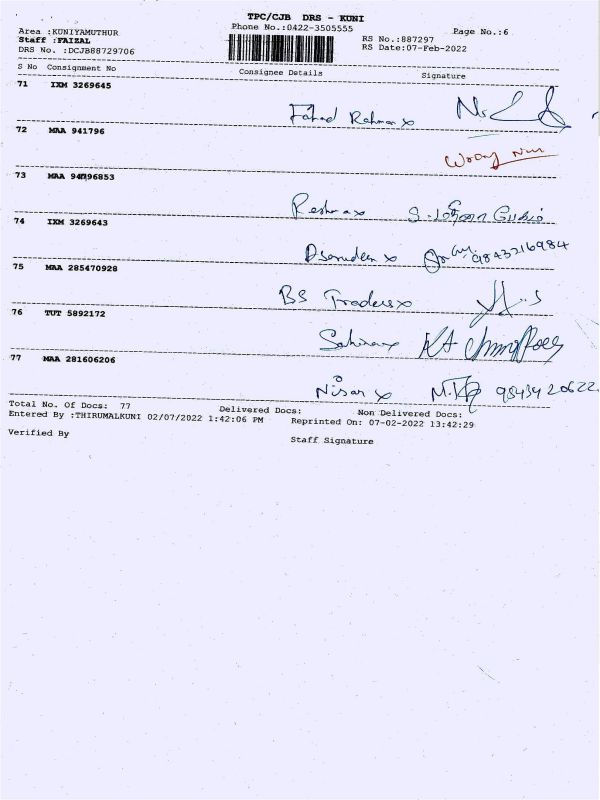 TPC/CJB DRS - KUNI
Phone No.:0422-3505555
Page No.:6
Area :KUNIYAMUTHUR
Staff :FAIZAL
RS No.:887297
DRS No. :DCJB88729706
RS Date:07-Feb-2022
S No Consignment No Consignee Details Signature
71 IXM 3269645
Fahad Rahman x
72 MAA 941796
Wrong
73 MAA 96853
Reshma x
74 IXM 3269643
9843216984
75 MAA 285470928
BS Traders x
76 TUT 5892172
Sahira x
77 MAA 281606206
Nisar x
Total No. Of Docs: 77 Delivered Docs: Non Delivered Docs:
Entered By :THIRUMALKUNI 02/07/2022 1:42:06 PM Reprinted On: 07-02-2022 13:42:29
Verified By
Staff Signature